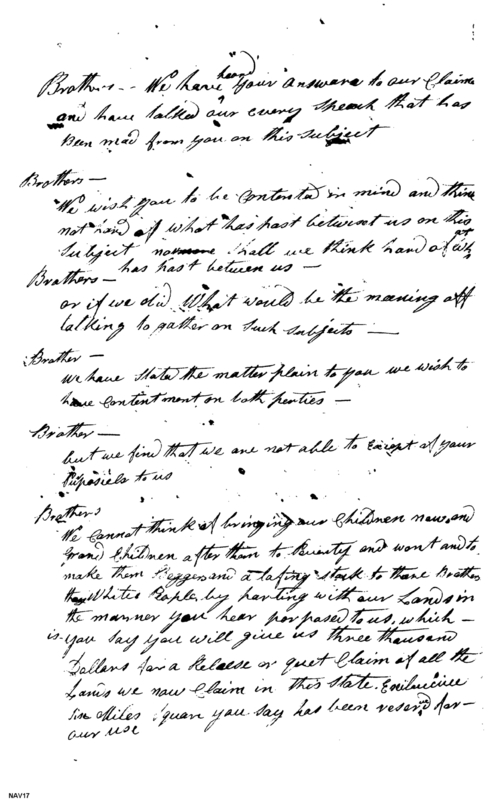 Brothers -- We have heard your answare to our Claime
and have talked our every Speach that has
Been mad from you on this subject
Brothers —
We wish you to be Contented in mind and think
not hard of what has past betwixt us on this
Subject nomore Shall we think hard of what
Brothers — has past between us —
or if we did What would be the meaning off
talking to gather on Such Subjects —
Brother —
We have Stated the matter plain to you we wish to
have Contentment on both parties —
Brother —
but we find that we are not able to Except of your
Puposiels to us
Brothers
We Cannot think of bringing our Children now and
Grand Children after them to Poverity and wont and to
make them Beggers and a lafing Stock to thare Brothers
the White People by parting with our Lands in
the manner you hear porposed to us, which —
is you Say you will give us three thousand
Dollars for a Relaese or quet Claim of all the
Lands we now Claim in this State.
Six Miles Squar you Say has been reserved for —
our use
NAV17